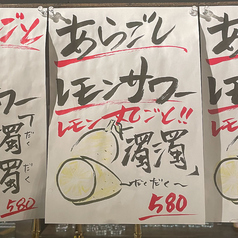 ごと
サワー
濁濁
だくだく
580
あらごし
レモンサワー
レモン丸ごと!!
「濁濁」
〜だくだく〜
580